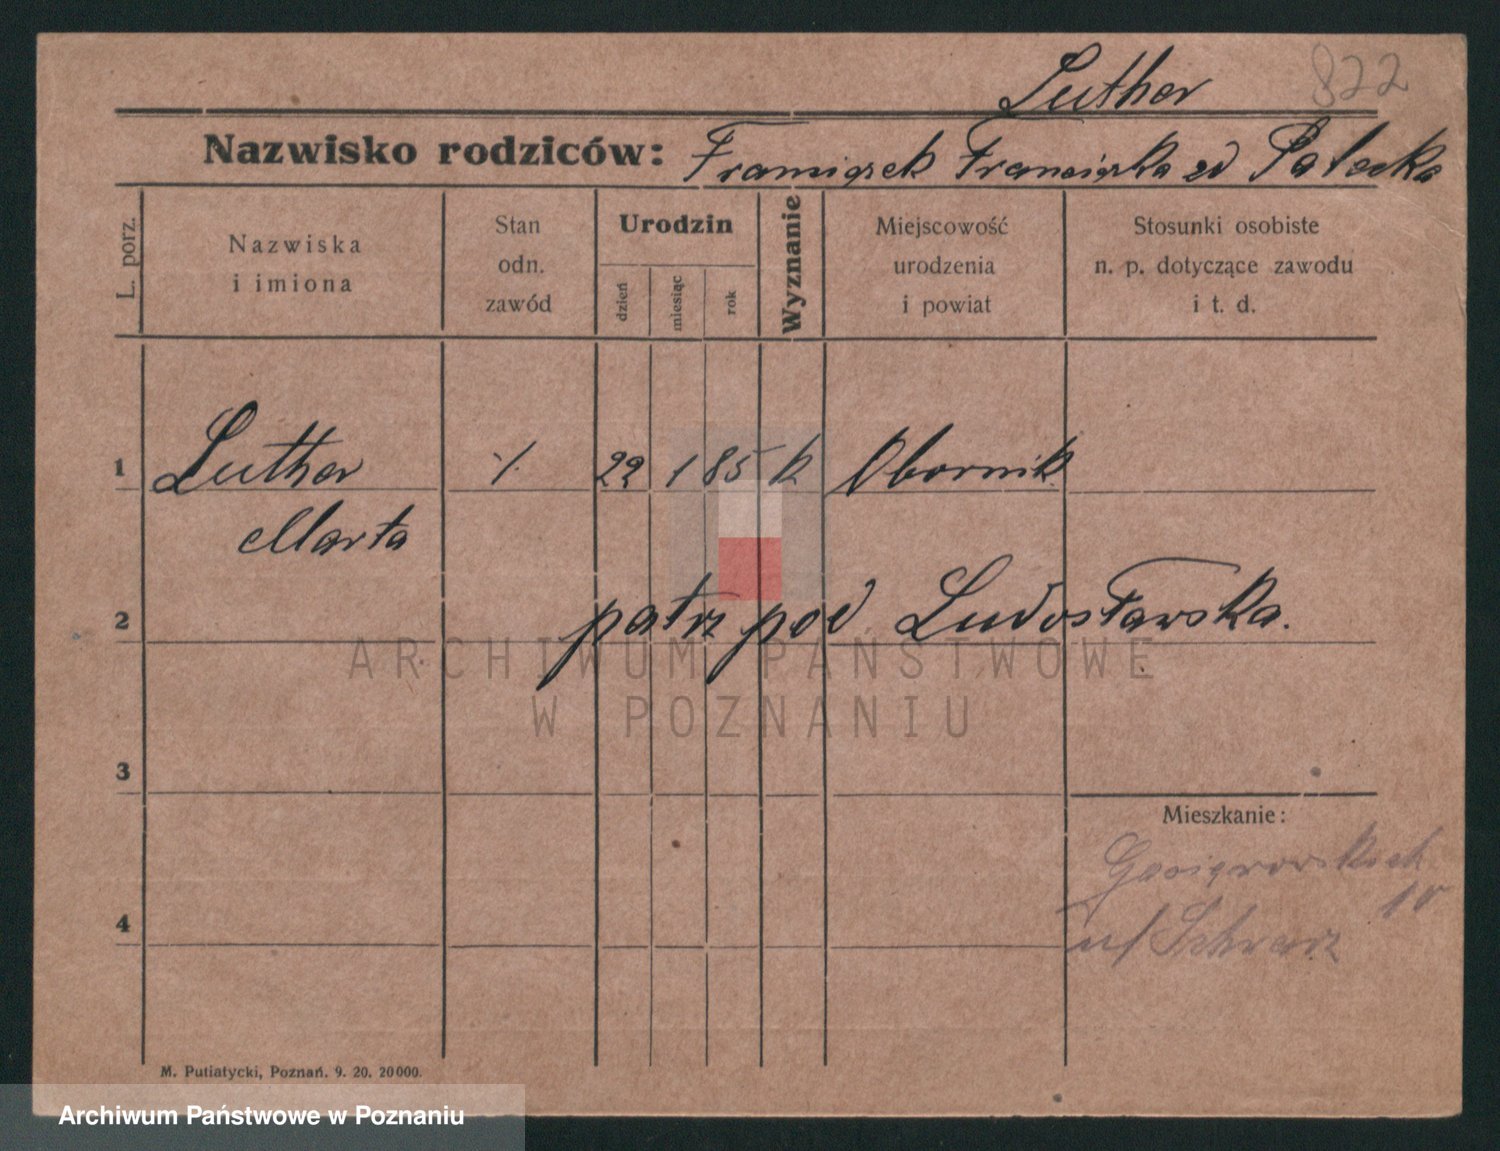 Luther 822
Nazwisko rodziców: Franciszek Franciszka zd
L. porz.
Nazwiska
i imiona
Stan
odn.
zawód
Urodzin
dzień
miesiąc
rok
Wyznanie
Miejscowość
urodzenia
i powiat
Stosunki osobiste
n. p. dotyczące zawodu
i t. d.
1 Luther ·/. 22 1 85 k Obornik
Marta
2 patrz pod Ludosławska.
ARCHIWUM PAŃSTWOWE
W POZNANIU
3
Mieszkanie:
Gąsiorowskich
10
4 u/ Schwarz
M. Putiatycki, Poznań. 9. 20. 20000.
Archiwum Państwowe w Poznaniu